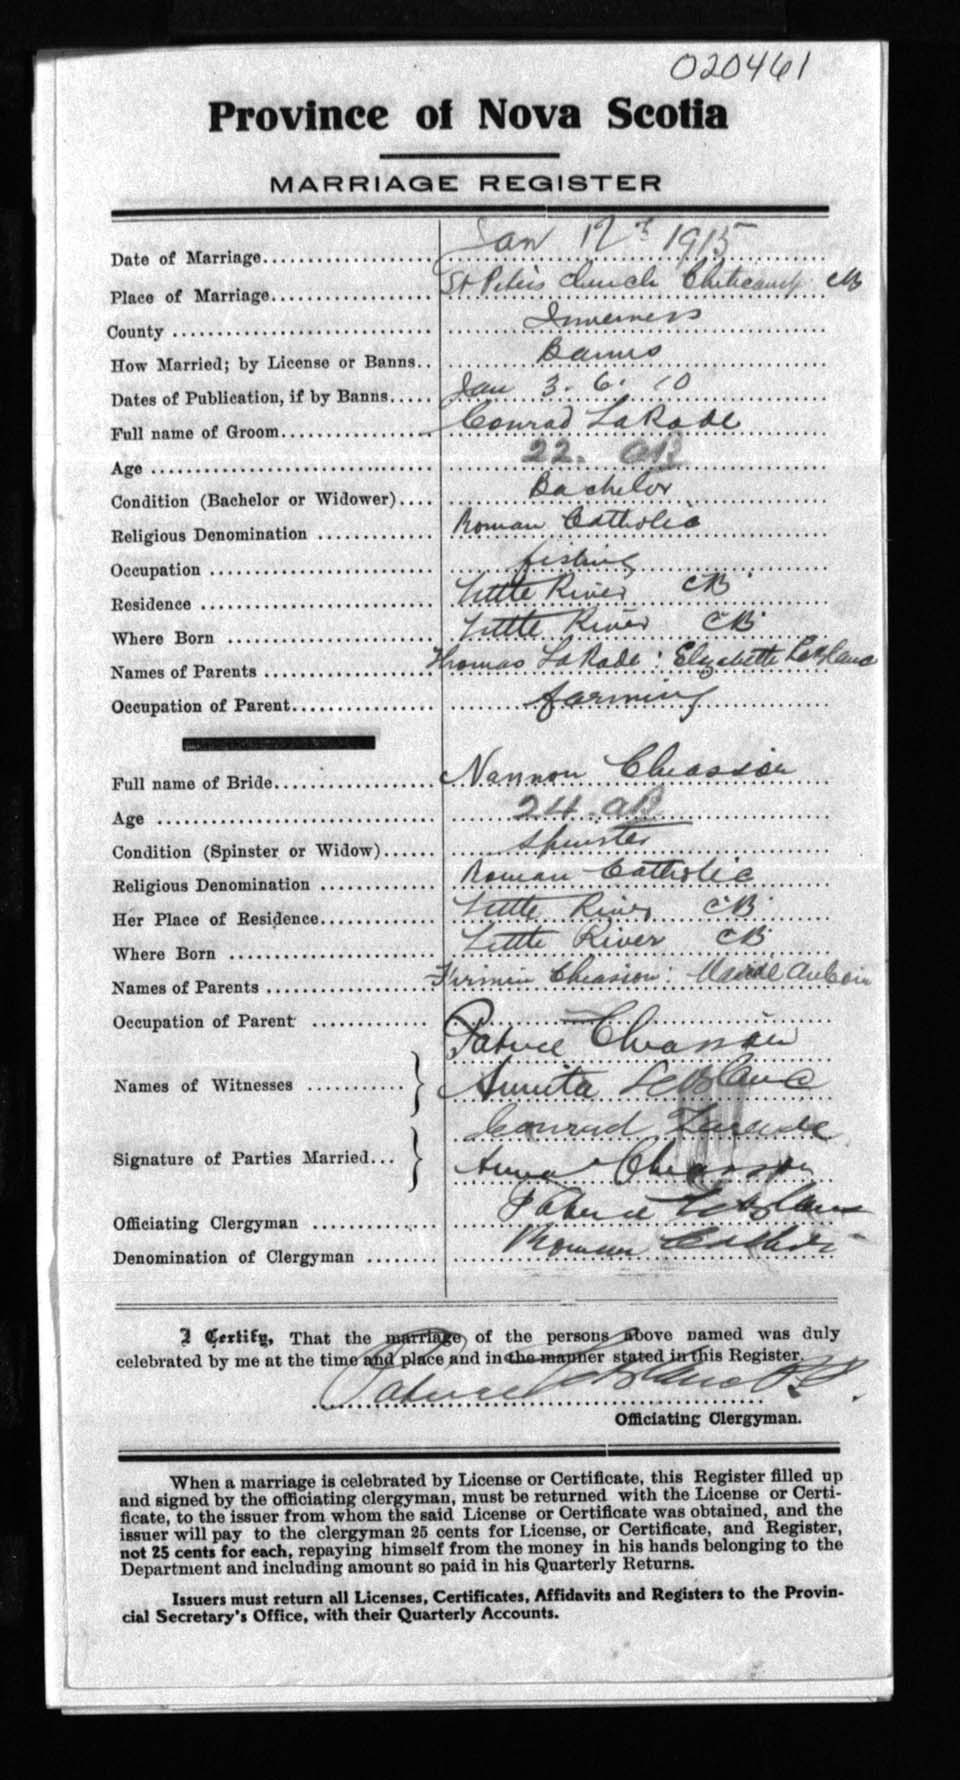 020461
Province of Nova Scotia
MARRIAGE REGISTER
Date of Marriage Jan 12th 1915
Place of Marriage St Peters Church Cheticamp CB
County Inverness
How Married; by License or Banns Banns
Dates of Publication, if by Banns Jan 3. 6. 10
Full name of Groom Conrad LaRade
Age 22. aB
Condition (Bachelor or Widower) Bachelor
Religious Denomination Roman Catholic
Occupation fishing
Residence Little River CB
Where Born Little River CB
Names of Parents Thomas LaRade : Elizabeth LeBlanc
Occupation of Parent farming
Full name of Bride Nannon Chiasson
Age 24 aB
Condition (Spinster or Widow) Spinster
Religious Denomination Roman Catholic
Her Place of Residence Little River CB
Where Born Little River CB
Names of Parents Firmin Chiasson : Aucoin
Occupation of Parent
Patrice Chiasson
Names of Witnesses Annita LeBlanc
Conrad Larade
Signature of Parties Married Anna Chiasson
Officiating Clergyman Patrice LeBlanc
Denomination of Clergyman Roman Catholic
I Certify, That the marriage of the persons above named was duly
celebrated by me at the time and place and in the manner stated in this Register.
Patrice LeBlanc P.P.
Officiating Clergyman.
When a marriage is celebrated by License or Certificate, this Register filled up
and signed by the officiating clergyman, must be returned with the License or Certi-
ficate, to the issuer from whom the said License or Certificate was obtained, and the
issuer will pay to the clergyman 25 cents for License, or Certificate, and Register,
not 25 cents for each, repaying himself from the money in his hands belonging to the
Department and including amount so paid in his Quarterly Returns.
Issuers must return all Licenses, Certificates, Affidavits and Registers to the Provin-
cial Secretary's Office, with their Quarterly Accounts.